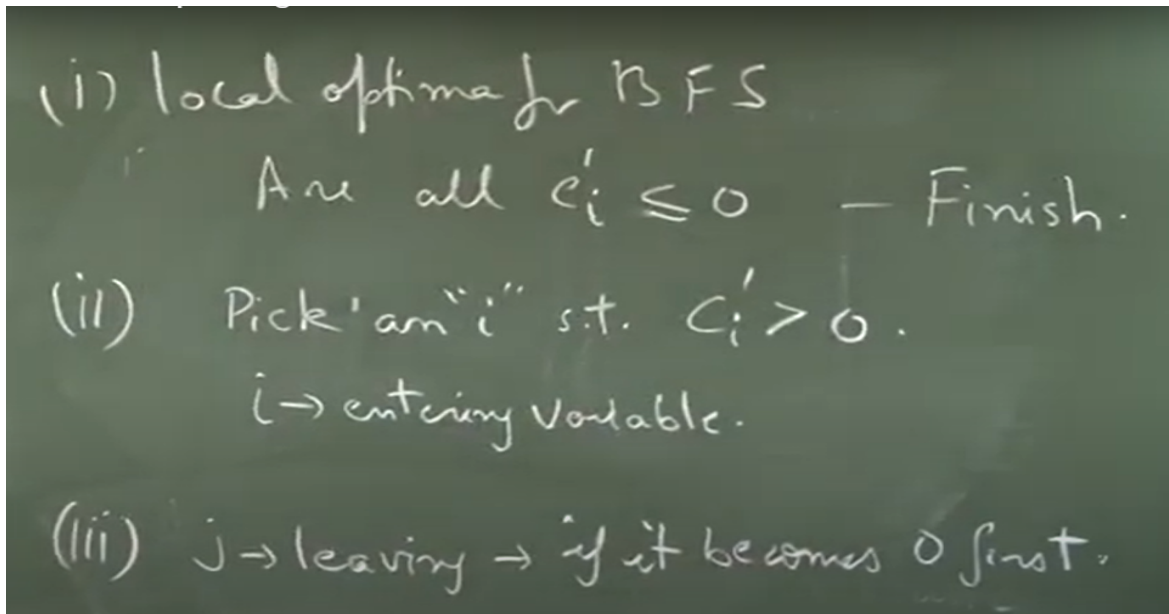 (i) local optima for BFS
Are all c'i ≤ 0 – Finish.
(ii) Pick an "i" s.t. C'i > 0.
i → entering variable.
(iii) j → leaving → if it becomes 0 first.